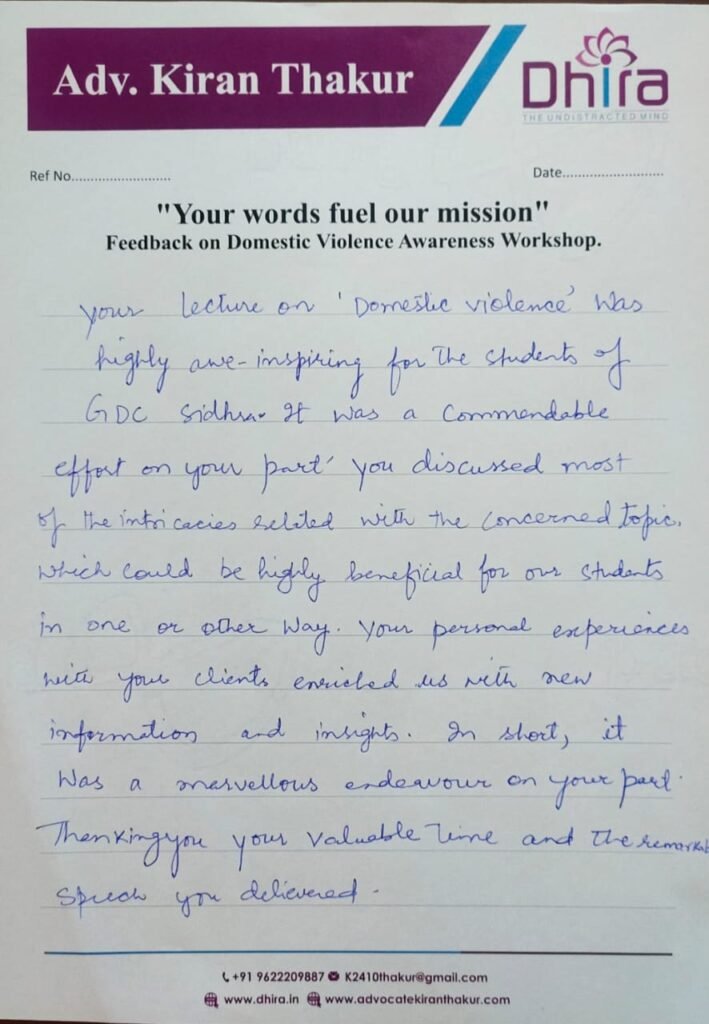 Adv. Kiran Thakur
Dhira
THE UNDISTRACTED MIND
Ref No.........................
Date.........................
"Your words fuel our mission"
Feedback on Domestic Violence Awareness Workshop.
Your lecture on 'Domestic violence' was
highly awe-inspiring for the students of
GDC Sidhra. It was a commendable
effort on your part' you discussed most
of the intricacies related with the concerned topic.
which could be highly beneficial for our students
in one or other way. Your personal experiences
with your clients enriched us with new
information and insights. In short, it
was a marvellous endeavour on your part.
Thanking you your valuable time and the remarkab
speech you delievered.
+91 9622209887 K2410thakur@gmail.com
www.dhira.in www.advocatekiranthakur.com